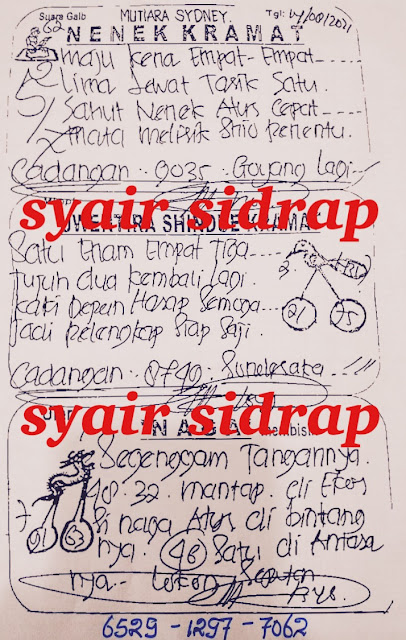 Suara Gaib MUTIARA SYDNEY. Tgl:
NENEK KRAMAT
maju kena Empat-Empat
Lima Lewat Tarik Satu.
Sahut Nenek Atus Cepat
mata Shio Penentu.
Cadangan . 9035 . Goyang Lagi
syair sidrap
KRAMAT
Satu Enam Empat Tiga
Turun dua kembali Lagi.
kaki Depan Harap Semoga
Jadi pelengkap Siap Saji.
21 75
Cadangan . 0790
syair sidrap
NAGA
Segenggam Tangannya.
98.32. mantap. di Ekor
Si naga Atus di bintang
63
nya. 46 Satu di Antara
nya
6529 - 1297 - 7062